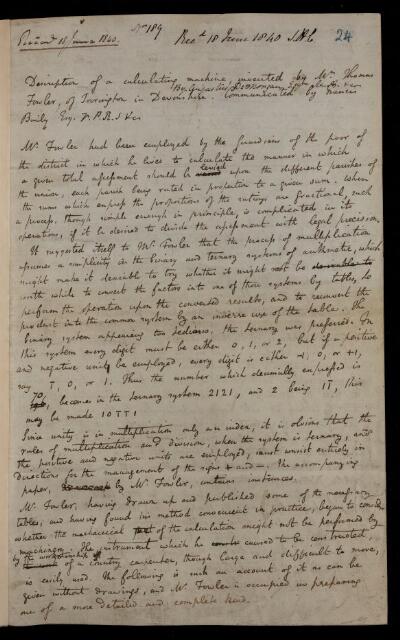 Received 11 June 1840.
No 189
Recd 18 June 1840 S.H.C.
24
Description of a calculating machine, invented by Mr. Thomas
By Augustus De Morgan Esqre
Fowler, of Torrington in Devonshire. Communicated by Francis
Baily Esq. V.P.R.S &c
Mr Fowler had been employed by the Guardians of the poor of
the district in which he lives to calculate the manner in which
a given total assessment should be levied upon the different parishes of
the union, each parish being rated in proportion to a given sum. When
the sums which express the proportions of the ratings are fractional, such
a process, though simple enough in principle, is complicated in its
operation, if it be desired to divide the assessment with legal precision.
It suggested itself to Mr Fowler that the process of multiplication
assumes a simplicity in the binary and ternary systems of arithmetic, which
might make it desirable to try whether it might not be
worth while to convert the factors into one of those systems by tables, to
perform the operation upon the converted results, and to reconvert the
product into the common system by an inverse use of the tables. The
binary system appearing too tedious, the ternary was preferred. In
this system every digit must be either 0, 1, or 2, but if a positive
and negative unit be employed, every digit is either -1, 0, or +1,
say T, 0, or 1. Thus the number which decimally expressed is
70, becomes in the ternary system 2121, and 2 being 1T, this
may be made 10TT1
Since unity is in multiplication only an index, it is obvious that the
rules of multiplication and division, when the system is ternary, and
the positive and negative units are employed, must consist entirely in
directions for the management of the signs + and -. The accompanying
paper, by Mr. Fowler, contains instances.
Mr. Fowler, having drawn up and published some of the necessary
tables, and having found his method convenient in practice, began to consider
whether the mechanical part of the calculation might not be performed by
machinery. The instrument which he caused to be constructed,
by the workmanship of a country carpenter, though large and difficult to move,
is easily used. The following is such an account of it as can be
given without drawings, and Mr Fowler is occupied in preparing
one of a more detailed and complete kind.